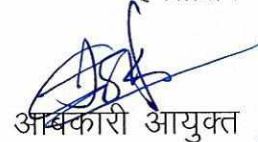 आबकारी आयुक्त